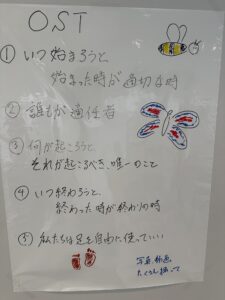 OST
① いつ始まろうと
始まった時が適切な時
② 誰もが適任者
③ 何が起ころうと
それが起こるべき唯一のこと
④ いつ終わろうと、
終わった時が終わりの時
⑤ 私たちは足を自由に使っていい
写真・動画
たくさん撮って